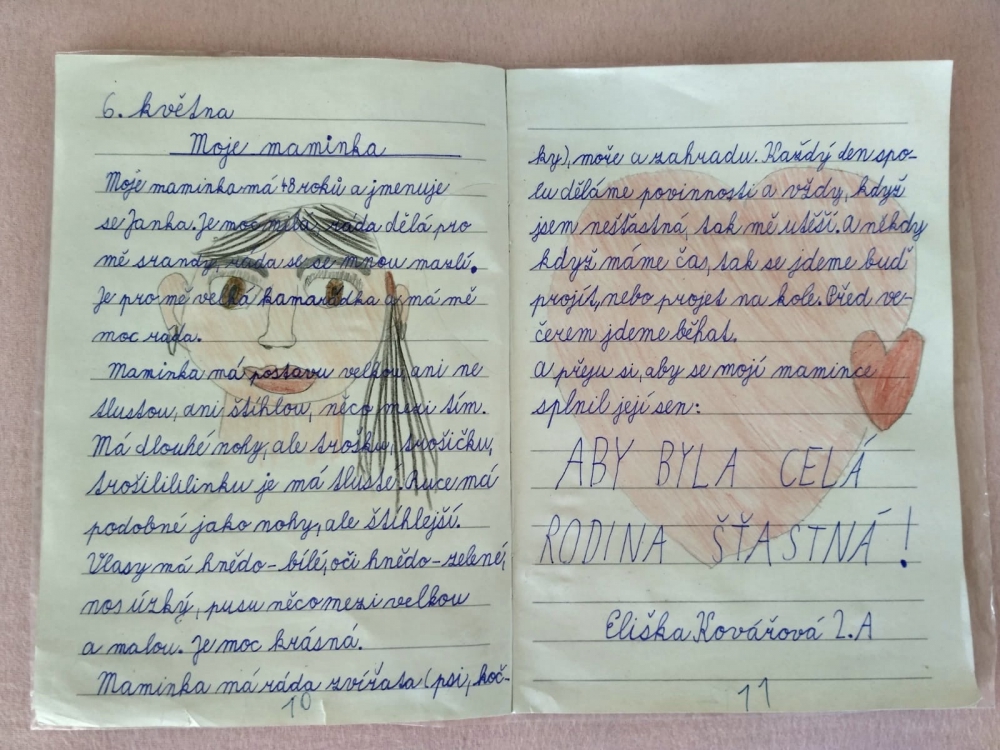 6. května
Moje maminka
Moje maminka má 48 roků a jmenuje
se Janka. Je moc milá, ráda dělá pro
mě srandy, ráda se se mnou mazlí.
Je pro mě velká kamarádka a má mě
moc ráda.
Maminka má postavu velkou, ani ne
tlustou, ani štíhlou, něco mezi tím.
Má dlouhé nohy, ale trošku, trošičku,
trošilililinku je má tlusté. Ruce má
podobné jako nohy, ale štíhlejší.
Vlasy má hnědo-bílé, oči hnědo-zelené,
nos úzký, pusu něco mezi velkou
a malou. Je moc krásná.
Maminka má ráda zvířata (psi, koč-
10
ky), moře a zahradu. Každý den spo-
lu děláme povinnosti a vždy, když
jsem nešťastná, tak mě utěší. A někdy
když máme čas, tak se jdeme buď
projít, nebo projet na kole. Před ve-
čerem jdeme běhat.
A přeju si, aby se mojí mamince
splnil její sen:
ABY BYLA CELÁ
RODINA ŠŤASTNÁ!
Eliška Kovářová 2.A
11